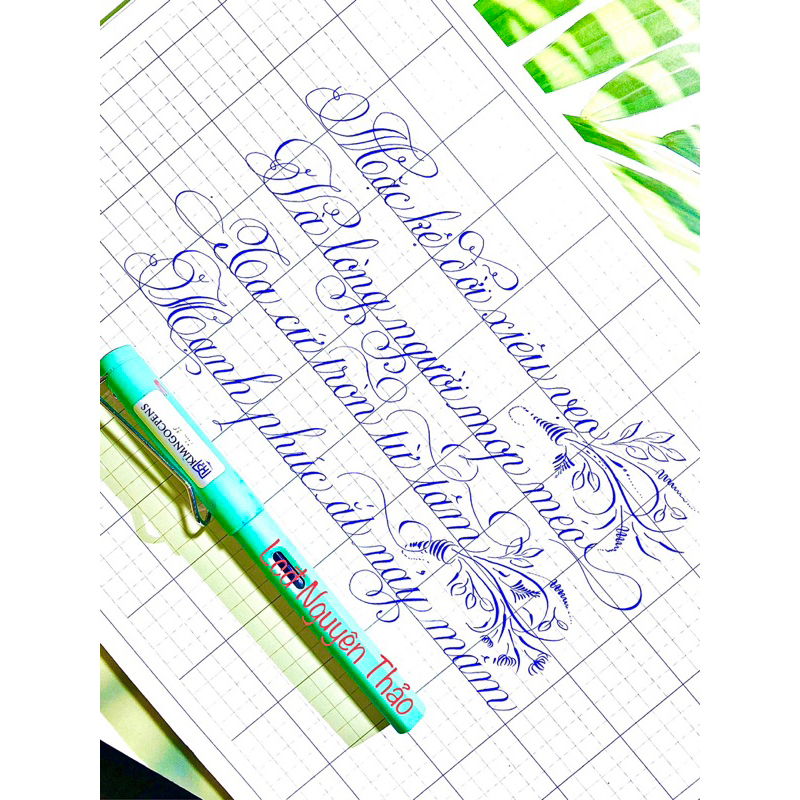 Mặc kệ đời xiêu vẹo
Và lòng người móp méo
Ta cứ tròn từ tâm
Hạnh phúc ắt nảy mầm
KIMNGOCPENS
Nguyên Thảo